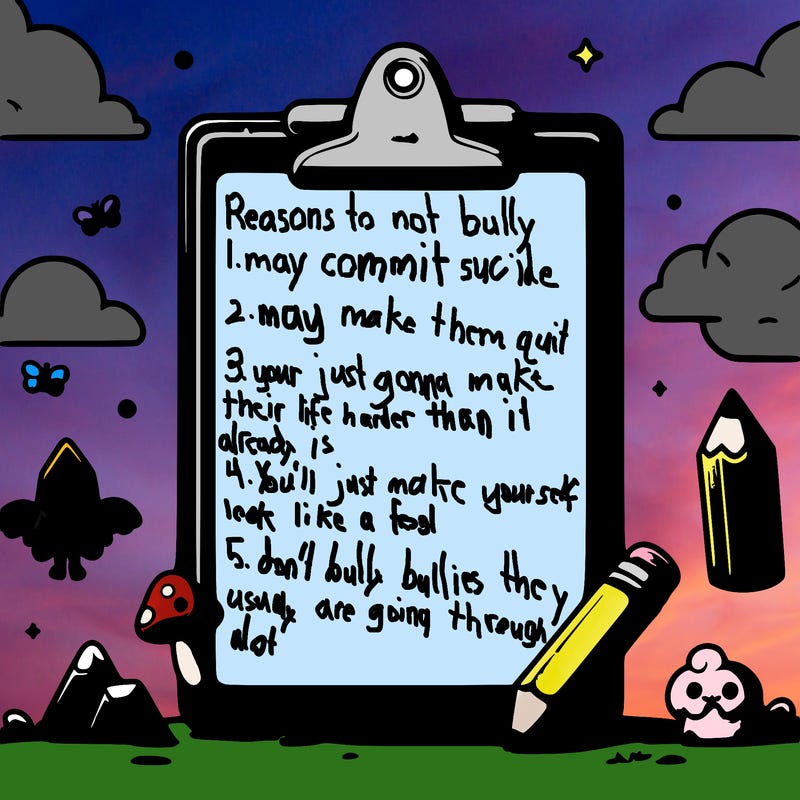 Reasons to not bully
1.may commit sucide
2.may make them quit
3.your just gonna make
their life harder than it
already is
4.You'll just make yourself
look like a fool
5.don't bully bullies they
usualy are going through
alot